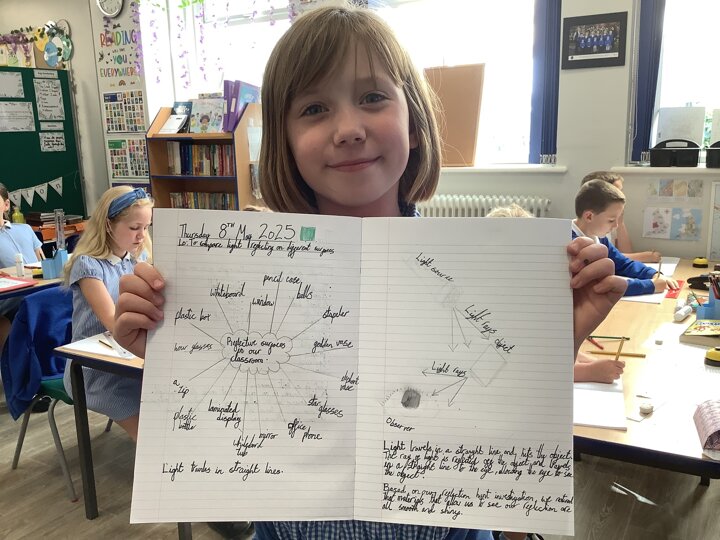 READING
YOU
EVERYWHERE
Thursday 8TH May 2025
LO: To compare light reflecting on different surfaces
pencil case
whiteboard
window
balls
plastic box
stapler
your glasses
Reflective surfaces
in our
classroom.
golden vase
elephant
vase
a
zip
star
glasses
plastic
bottle
laminated
display
office
phone
mirror
whiteboard
tub
Light travels in straight lines.
Light source
Light rays
object
Light rays
Observer
Light travels in a straight line and hits the object.
The ray of light is reflected off the object and travels
in a straight line to the eye, allowing the eye to see
the object.
Based on our reflection hunt investigation, we noticed
that materials that allow us to see our reflection are
all smooth and shiny.